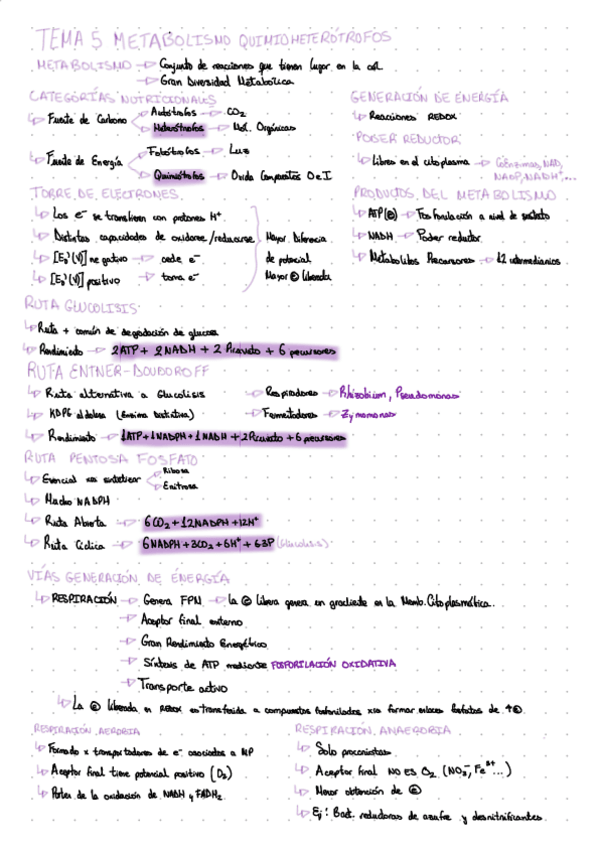 TEMA 5 METABOLISMO QUIMIOHETERÓTROFOS
METABOLISMO → Conjunto de reacciones que tienen lugar en la cel
→ Gran Diversidad Metabólica
CATEGORÍAS NUTRICIONALES
↳ Fuente de Carbono
Autótrofos → CO₂
Heterótrofos → Mol. Orgánicas
↳ Fuente de Energía
Fotótrofos → Luz
Quimiótrofos → Oxida Compuestos O e I
GENERACIÓN DE ENERGÍA
↳ Reacciones REDOX
PODER REDUCTOR:
↳ Libres en el citoplasma → Coenzimas, NAD, NADP, NADH⁺...
TORRE DE ELECTRONES
↳ Los e⁻ se transfieren con protones H⁺
↳ Distintas capacidades de oxidarse/reducirse
↳ [E₀'(V)] negativo → cede e⁻
↳ [E₀'(V)] positivo → toma e⁻
Mayor Diferencia
de potencial
Mayor Ⓔ liberada
PRODUCTOS DEL METABOLISMO
↳ ATP(Ⓔ) → Fosforilación a nivel de sustrato
↳ NADH → Poder reductor
↳ Metabolitos Precursores → 12 intermediarios
RUTA GLUCOLISIS
↳ Ruta + común de degradación de glucosa
↳ Rendimiento → 2ATP + 2NADH + 2 Piruvato + 6 precursores
RUTA ENTNER-DOUDOROFF
↳ Ruta alternativa a Glucolisis
↳ KDPG aldolasa (Enzima Distintiva)
→ Respiradores → Rhizobium, Pseudomonas
→ Fermentadores → Zymomonas
↳ Rendimiento → 1ATP+1NADPH+1NADH+2Piruvato+6 precursores
RUTA PENTOSA FOSFATO
↳ Esencial xa sintetizar
Ribosa
Eritrosa
↳ Mucho NADPH
↳ Ruta Abierta → 6CO₂+12NADPH+12H⁺
↳ Ruta Cíclica → 6NADPH+3CO₂+6H⁺+G3P (Glucolisis)
VÍAS GENERACIÓN DE ENERGÍA
↳ RESPIRACIÓN → Genera FPM → La Ⓔ libera genera en gradiente en la Memb. Citoplasmática..
→ Aceptor final externo
→ Gran Rendimiento Energético
→ Síntesis de ATP mediante FOSFORILACIÓN OXIDATIVA
→ Transporte activo
↳ La Ⓔ liberada en REDOX es transferida a compuestos fosforilados xa formar enlaces fosfatos de ↑Ⓔ.
RESPIRACIÓN AEROBIA
↳ Formado x transportadores de e⁻ asociados a MP
↳ Aceptor final tiene potencial positivo (O₂)
↳ Parten de la oxidación de NADH y FADH₂
RESPIRACIÓN ANAEROBIA
↳ Solo procariotas
↳ Aceptor final NO ES O₂ (NO₃⁻, Fe³⁺...)
↳ Menor obtención de Ⓔ
↳ Ej: Bact. reductoras de azufre y desnitrificantes.